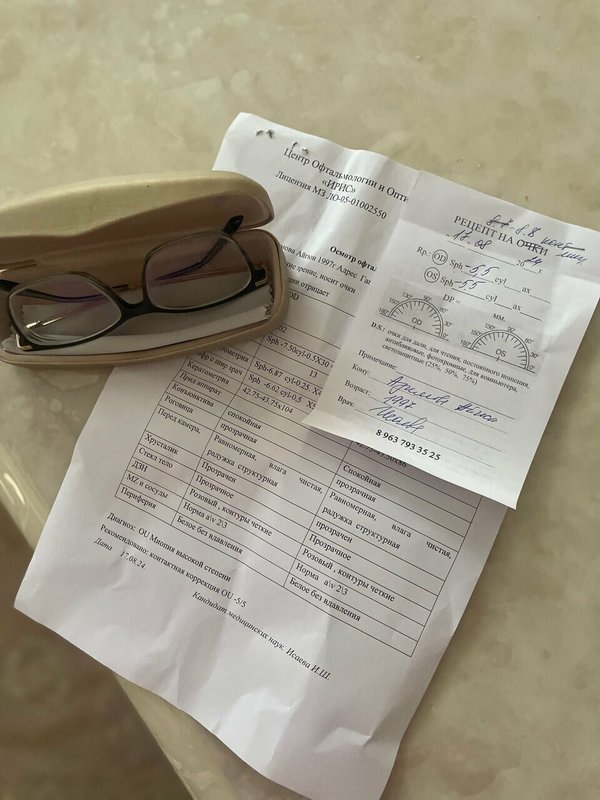 Центр Офтальмологии и Опти
«ИРИС»
Лицензия МЗ ЛО-05-01002550
Осмотр офта
1997г Адрес
зрение, носит очки
отрицает
OD
02
Sph -7.56cyl-0.5X30
13
Рефр с шир зрач
Sph-6.87 cyl-0.25 X
Кератометрия
Sph -6.62 cyl-0.5 X5
Прид аппарат
42.75-43.75x104
Конъюнктива
спокойная
Спокойная
Роговица
прозрачная
прозрачная
Перед камера,
Равномерная, влага чистая,
радужка структурная
Равномерная, влага чистая,
радужка структурная
Хрусталик
Прозрачен
прозрачен
Стекл тело
Прозрачное
Прозрачное
ДЗН
Розовый , контуры четкие
Розовый , контуры четкие
MZ и сосуды
Норма a\v 2\3
Норма a\v 2\3
Периферия
Белое без вдавления
Белое без вдавления
Диагноз: OU Миопия высокой степени
Рекомендовано: контактная коррекция OU -5/5
Дата 17.08.24
Кандидат медицинских наук. Исаева И.Ш.
8.8
РЕЦЕПТ НА ОЧКИ
17.08 20 24 г.
Rp.: OD Sph -5,5 cyl ax
OS Sph -5,5 cyl ax
DP= мм.
OD
OS
D.S.: очки для дали, для чтения, постоянного ношения,
антибликовые, фотохромные, для компьютера,
светозащитные (25%, 50%, 75%)
Примечание:
Кому:
Возраст: 1997
Врач: Исаева
8 963 793 35 25